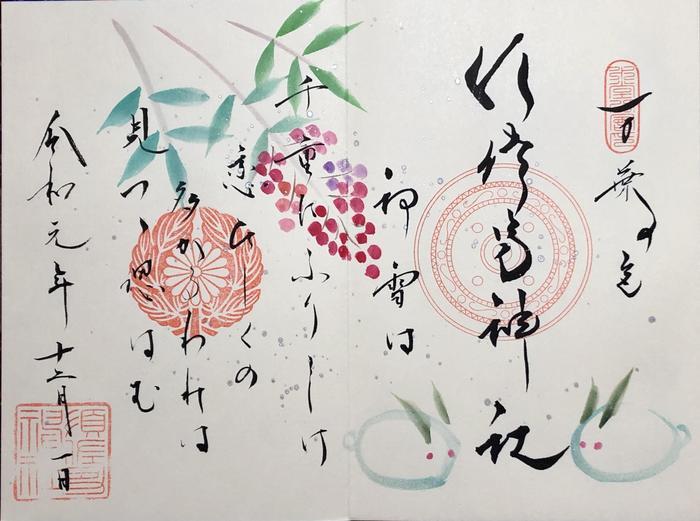 万葉の
神社
初雪は
千重にふりしけ
恋ひしくの
多かるわれは
見つゝ偲はむ
令和元年十二月一日